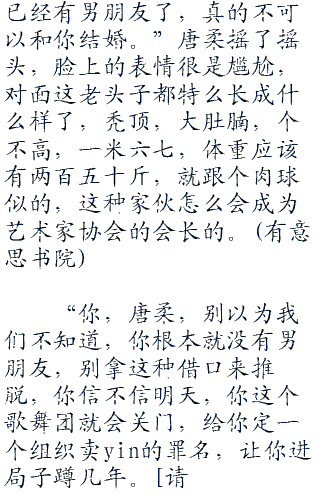 已经有男朋友了，真的不可
以和你结婚。”唐柔摇了摇
头，脸上的表情很是尴尬，
对面这老头子都特么长成什
么样了，秃顶，大肚腩，个
不高，一米六七，体重应该
有两百五十斤，就跟个肉球
似的，这种家伙怎么会成为
艺术家协会的会长的。(有意
思书院)
“你，唐柔，别以为我
们不知道，你根本就没有男
朋友，别拿这种借口来推
脱，你信不信明天，你这个
歌舞团就会关门，给你定一
个组织卖yin的罪名，让你进
局子蹲几年。[请